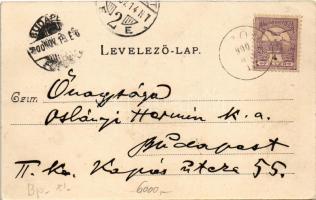 BUDAPEST
LEVELEZŐ-LAP.
Czim:
Őnagysága
Oslányi Hermin k. a.
Budapest
II. Ker. Kapás utcza 55.
Bp. XI.
6000.-